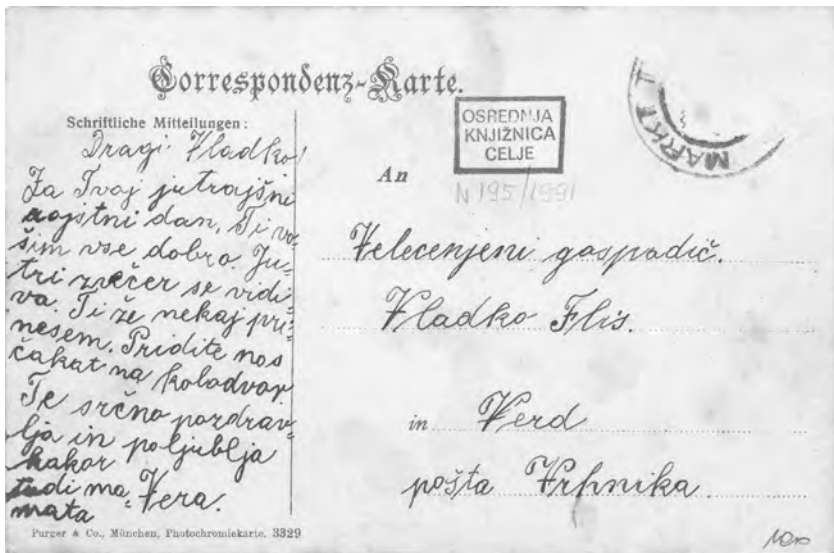 Correspondenz-Karte.
Schriftliche Mitteilungen:
Dragi Vladko!
Za Tvoj jutrajšni
rojstni dan, Ti vo-
šim vse dobro. Ju-
tri zvečer se vidi-
va. Ti že nekaj pri-
nesem. Pridite nas
čakat na kolodvor.
Te srčno pozdrav-
lja in poljublja
kakor
tudi ma- Vera.
mata
Purger & Co., München, Photochromiekarte. 3329
MARKT T
OSREDNJA
KNJIŽNICA
CELJE
N 195/1991
An
Velecenjeni gospodič.
Vladko Flis.
in Verd
pošta Vrhnika